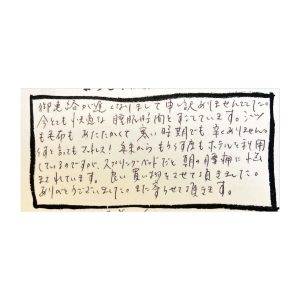 御連絡が遅くなりまして申し訳ありませんでした。
今とても快適な睡眠時間をすごしています。シーツ
も毛布もあたたかくて寒い時期でも辛くありません。
何と言ってもマットレス！年末から もう5度もホテルを利用
しているのですが、スプリングベッドだと朝の腰痛に
まれています。良い買い物をさせて頂きました。
ありがとうございました。また寄らせて頂きます。